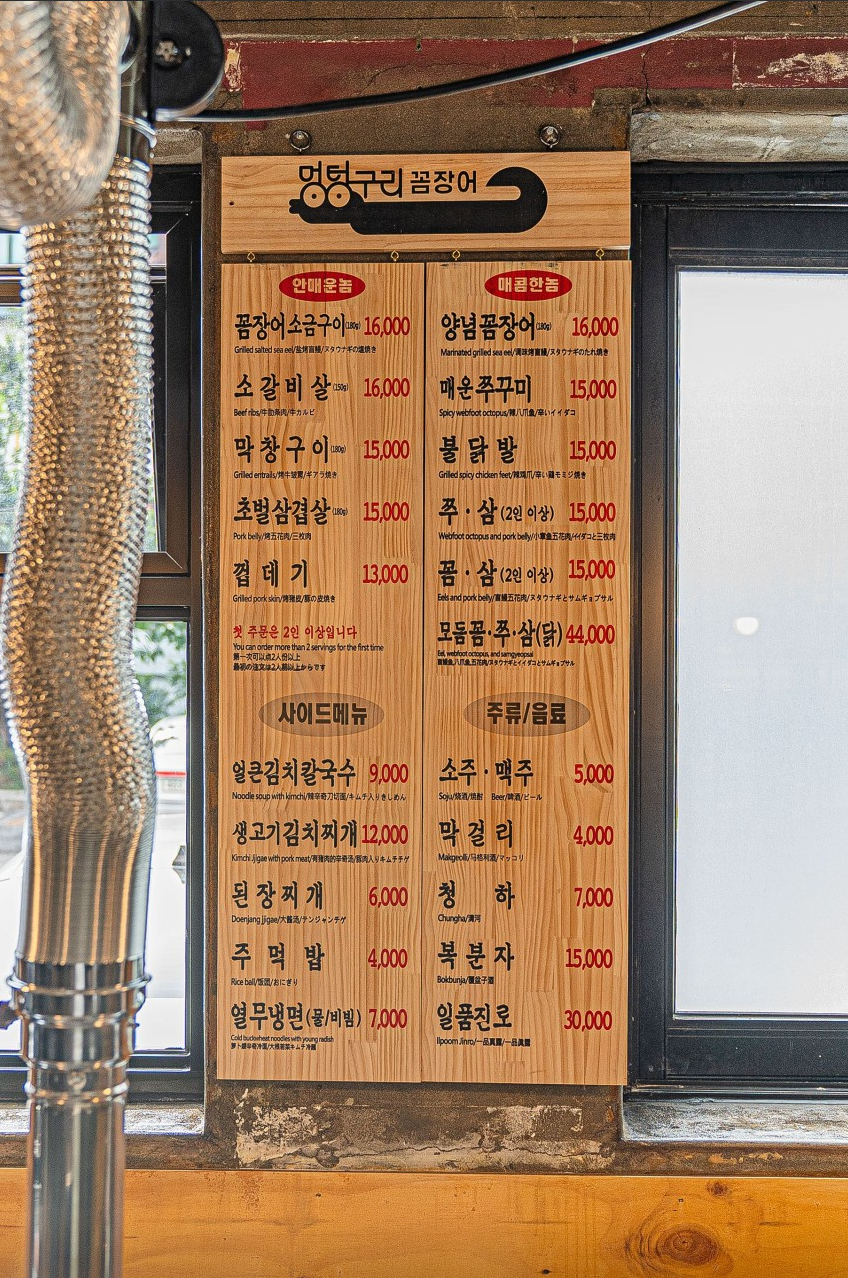 멍텅구리 꼼장어
안매운놈
꼼장어소금구이(180g) 16,000
Grilled salted sea eel/盐烤盲鳗/ヌタウナギの塩焼き
소갈비살(150g) 16,000
Beef ribs/牛肋条肉/牛カルビ
막창구이(180g) 15,000
Grilled entrails/烤牛皱胃/ギアラ焼き
초벌삼겹살(180g) 15,000
Pork belly/烤五花肉/三枚肉
껍데기 13,000
Grilled pork skin/烤猪皮/豚の皮焼き
첫 주문은 2인 이상입니다
You can order more than 2 servings for the first time
第一次可以点2人份以上
最初の注文は2人前以上からです
매콤한놈
양념꼼장어(180g) 16,000
Marinated grilled sea eel/调味烤盲鳗/ヌタウナギのたれ焼き
매운쭈꾸미 15,000
Spicy webfoot octopus/辣八爪鱼/辛いイイダコ
불닭발 15,000
Grilled spicy chicken feet/辣鸡爪/辛い鶏モミジ焼き
쭈·삼(2인 이상) 15,000
Webfoot octopus and pork belly/小章鱼五花肉/イイダコと三枚肉
꼼·삼(2인 이상) 15,000
Eels and pork belly/盲鳗五花肉/ヌタウナギとサムギョプサル
모듬꼼·쭈·삼(닭) 44,000
Eel, webfoot octopus, and samgyeopsal
盲鳗鱼,八爪鱼,五花肉/ヌタウナギとイイダコとサムギョプサル
사이드메뉴
얼큰김치칼국수 9,000
Noodle soup with kimchi/辣辛奇刀切面/キムチ入りきしめん
생고기김치찌개 12,000
Kimchi Jjigae with pork meat/有猪肉的辛奇汤/豚肉入りキムチチゲ
된장찌개 6,000
Doenjang jjigae/大酱汤/テンジャンチゲ
주먹밥 4,000
Rice ball/饭团/おにぎり
열무냉면(물/비빔) 7,000
Cold buckwheat noodles with young radish
萝卜缨辛奇冷面/大根若菜キムチ冷麺
주류/음료
소주·맥주 5,000
Soju/烧酒/焼酎 Beer/啤酒/ビール
막걸리 4,000
Makgeolli/马格利酒/マッコリ
청하 7,000
Chungha/清河
복분자 15,000
Bokbunja/覆盆子酒
일품진로 30,000
Ilpoom Jinro/一品真露/一品眞露